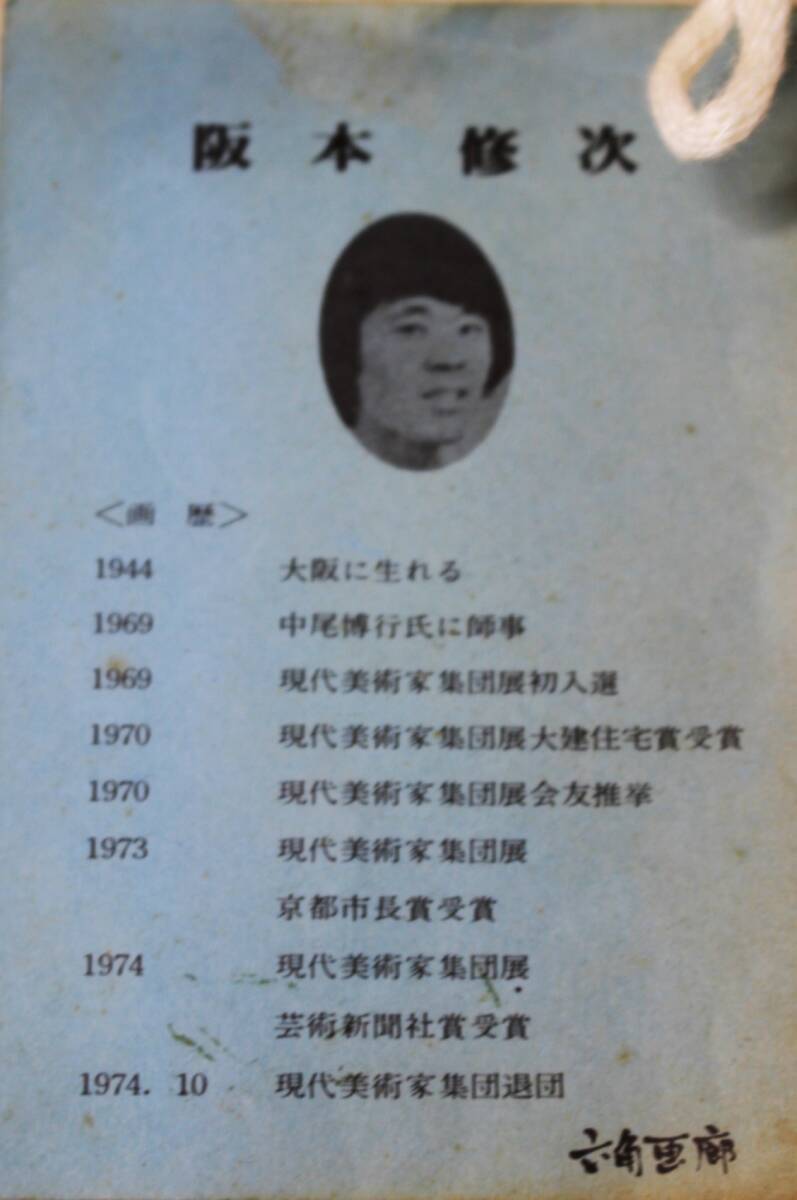 阪本 修次
<画 歴>
1944 大阪に生れる
1969 中尾博行氏に師事
1969 現代美術家集団展初入選
1970 現代美術家集団展大建住宅賞受賞
1970 現代美術家集団展会友推挙
1973 現代美術家集団展
京都市長賞受賞
1974 現代美術家集団展
芸術新聞社賞受賞
1974. 10 現代美術家集団退団
六角画廊